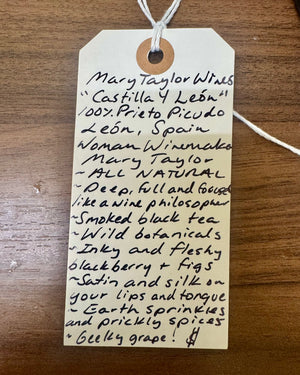 Mary Taylor Wines
"Castilla Y León"
100% Prieto Picudo
León, Spain
Woman Winemaker
Mary Taylor
~ ALL NATURAL
~ Deep, full and focused
like a wine philosopher
~ Smoked black tea
~ Wild botanicals
~ Inky and fleshy
blackberry + figs
~ Satin and silk on
your lips and tongue
~ Earth sprinkles
and prickly spices
~ Geeky grape! $